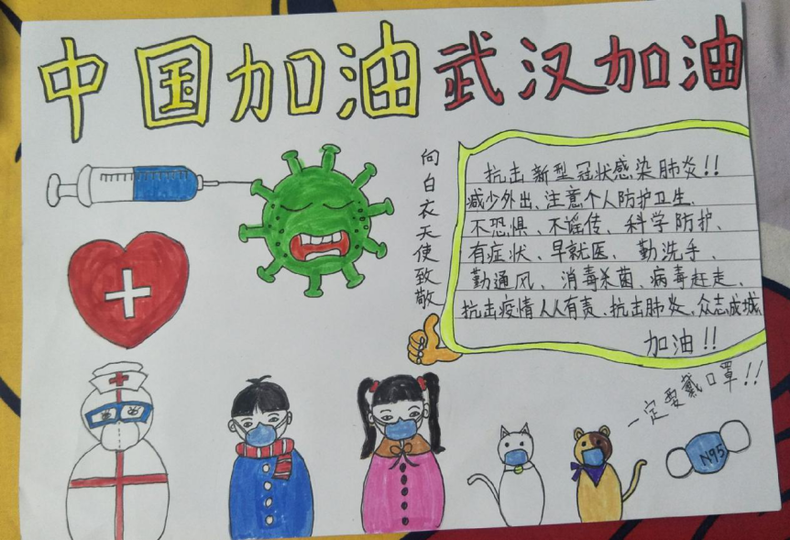 中国加油武汉加油
向白衣天使致敬
抗击新型冠状感染肺炎!!
减少外出、注意个人防护卫生.
不恐惧、不谣传、科学防护、
有症状、早就医、勤洗手、
勤通风、消毒杀菌、病毒赶走、
抗击疫情人人有责、抗击肺炎、众志成城
加油!!
一定要戴口罩!!
N95